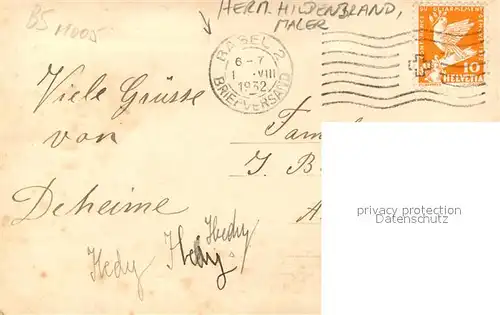 B5 11005
HERM. HILDENBRAND,
MALER
BASEL 2
6-7
1. VIII
1932
BRIEFVERSAND
DÉSARMEMENT
10
HELVETIA
Viele Grüsse
von
Deheime
Fam
J. B
A
privacy protection
Datenschutz
Hedy Hedy Hedy